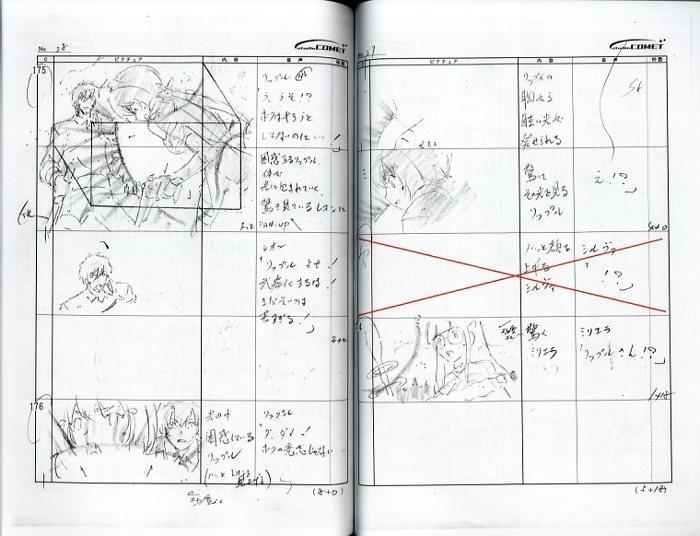 No. 28
studio COMET
C
ピクチュア
内容
音声
秒数
175
リップル
う、うそ!?
ボクはやろうと
してないのに…!
困惑するリップル
体が
光に包まれていく
驚き見ているレオンに
PAN-UP
レオン
「リップル よせ!
武器化するな!
まだそいつは
若すぎる!」
8+0
176
光の中
困惑している
リップル
リップル
「ダ、ダメ!
ボクの意志じゃない…
(8+0)
No. 27
studio COMET
ピクチュア
内容
音声
秒数
リップルの
胸から
眩い光が
発せられる
驚いて
その光を見る
リップル
え!?」
5+0
ハッと顔を
上げる
シルヴィ
シルヴィ
「!?」
74
驚く
ミリエラ
ミリエラ
「リップルさん!?」
(5+18)